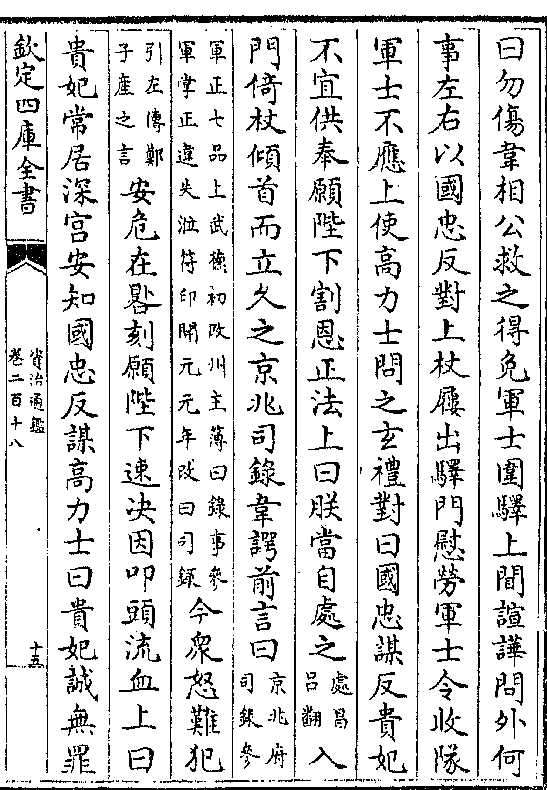 曰勿傷韋相公救之得免軍士圍驛上聞諠譁問外何
事左右以國忠反對上杖屨出驛門慰勞軍士令收隊
軍士不應上使髙力士問之𤣥禮對曰國忠謀反貴妃
不宜供奉願陛下割恩正法上曰朕當自處之處昌呂翻入
門倚杖傾首而立久之京兆司錄韋諤前言曰京兆府司錄參
軍正七品上武德初改州主簿曰錄事參
軍掌正違失涖符印開元元年改曰司錄今衆怒難犯
引左傳鄭子產之言安危在晷刻願陛下速决因叩頭流血上曰
貴妃常居深宫安知國忠反謀髙力士曰貴妃誠無罪
欽定四庫全書
資治通鑑
卷二百十八
十五